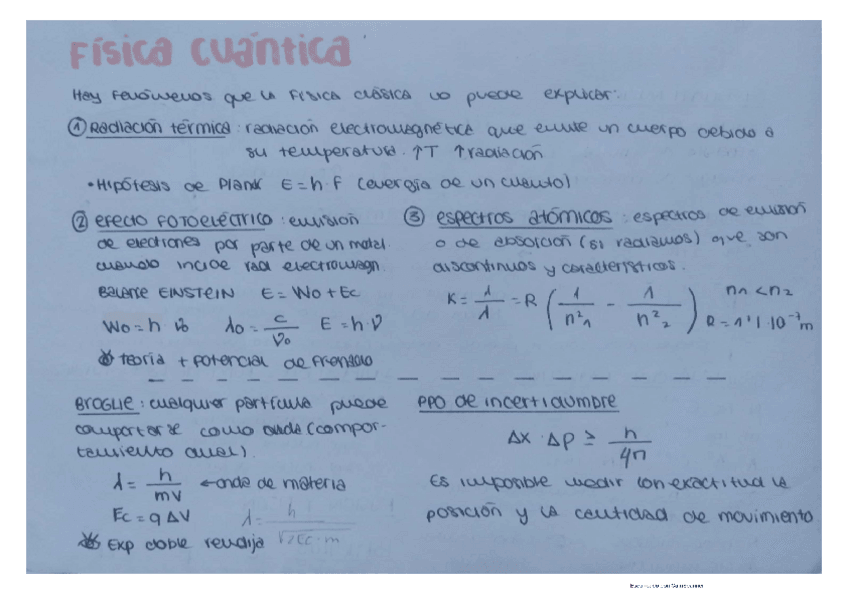 Física cuántica
Hay fenómenos que la física clásica no puede explicar.
① Radiación térmica: radiación electromagnética que emite un cuerpo debido a
su temperatura. ↑T ↑radiación
• Hipótesis de Plank E = h·f (energía de un cuanto)
② efecto fotoeléctrico: emisión
de electrones por parte de un metal
cuando incide rad electromagn.
Balance EINSTEIN E = Wo + Ec
Wo = h ν₀ λo = c/ν₀ E = h·ν
teoría + potencial de frenado
③ espectros atómicos: espectros de emisión
o de absorción (si radiamos) que son
discontinuos y característicos.
K = 1/λ = R (1/n²₁ − 1/n²₂) n₁ < n₂
R = 1'1·10⁻⁷ m
BROGLIE: cualquier partícula puede
comportarse como onda (compor-
tamiento dual).
λ = h/mv ← onda de materia
Ec = q ΔV λ = h/√2Ec·m
Exp doble rendija
PPO de incertidumbre
Δx · Δp ≥ h/4π
Es imposible medir con exactitud la
posición y la cantidad de movimiento
Escaneado con CamScanner